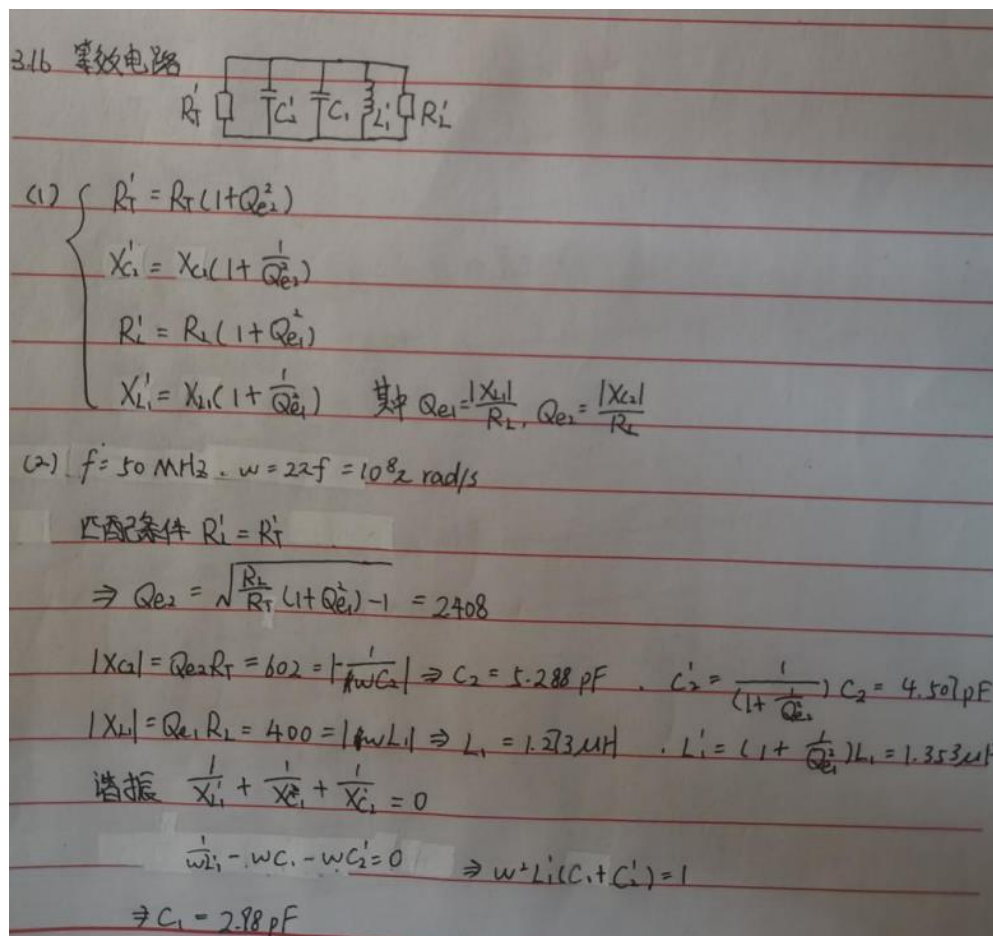 3.16 等效电路
R_T' C_2' C_1 L_1' R_L'
(1) { R_T' = R_T(1+Q_{e2}^2)
X_{C_2}' = X_{C_2}(1+\frac{1}{Q_{e2}^2})
R_L' = R_L(1+Q_{e1}^2)
X_{L_1}' = X_{L_1}(1+\frac{1}{Q_{e1}^2}) 其中 Q_{e1}=\frac{|X_{L_1}|}{R_L}, Q_{e2}=\frac{|X_{C_2}|}{R_L}
(2) f = 50 MHz . w = 2πf = 10^8π rad/s
匹配条件 R_L' = R_T'
⇒ Q_{e2} = \sqrt{\frac{R_L}{R_T}(1+Q_{e1}^2)-1} = 2.408
|X_{C_2}| = Q_{e2}R_T = 602 = |-\frac{1}{wC_2}| ⇒ C_2 = 5.288 pF . C_2' = \frac{1}{(1+\frac{1}{Q_{e2}^2})}C_2 = 4.507pF
|X_{L_1}| = Q_{e1}R_L = 400 = |wL_1| ⇒ L_1 = 1.273μH . L_1' = (1+\frac{1}{Q_{e1}^2})L_1 = 1.353μH
谐振 \frac{1}{X_{L_1}'} + \frac{1}{X_{C_1}} + \frac{1}{X_{C_2}'} = 0
\frac{1}{wL_1'} - wC_1 - wC_2' = 0 ⇒ w^2L_1'(C_1+C_2') = 1
⇒ C_1 = 2.98 pF